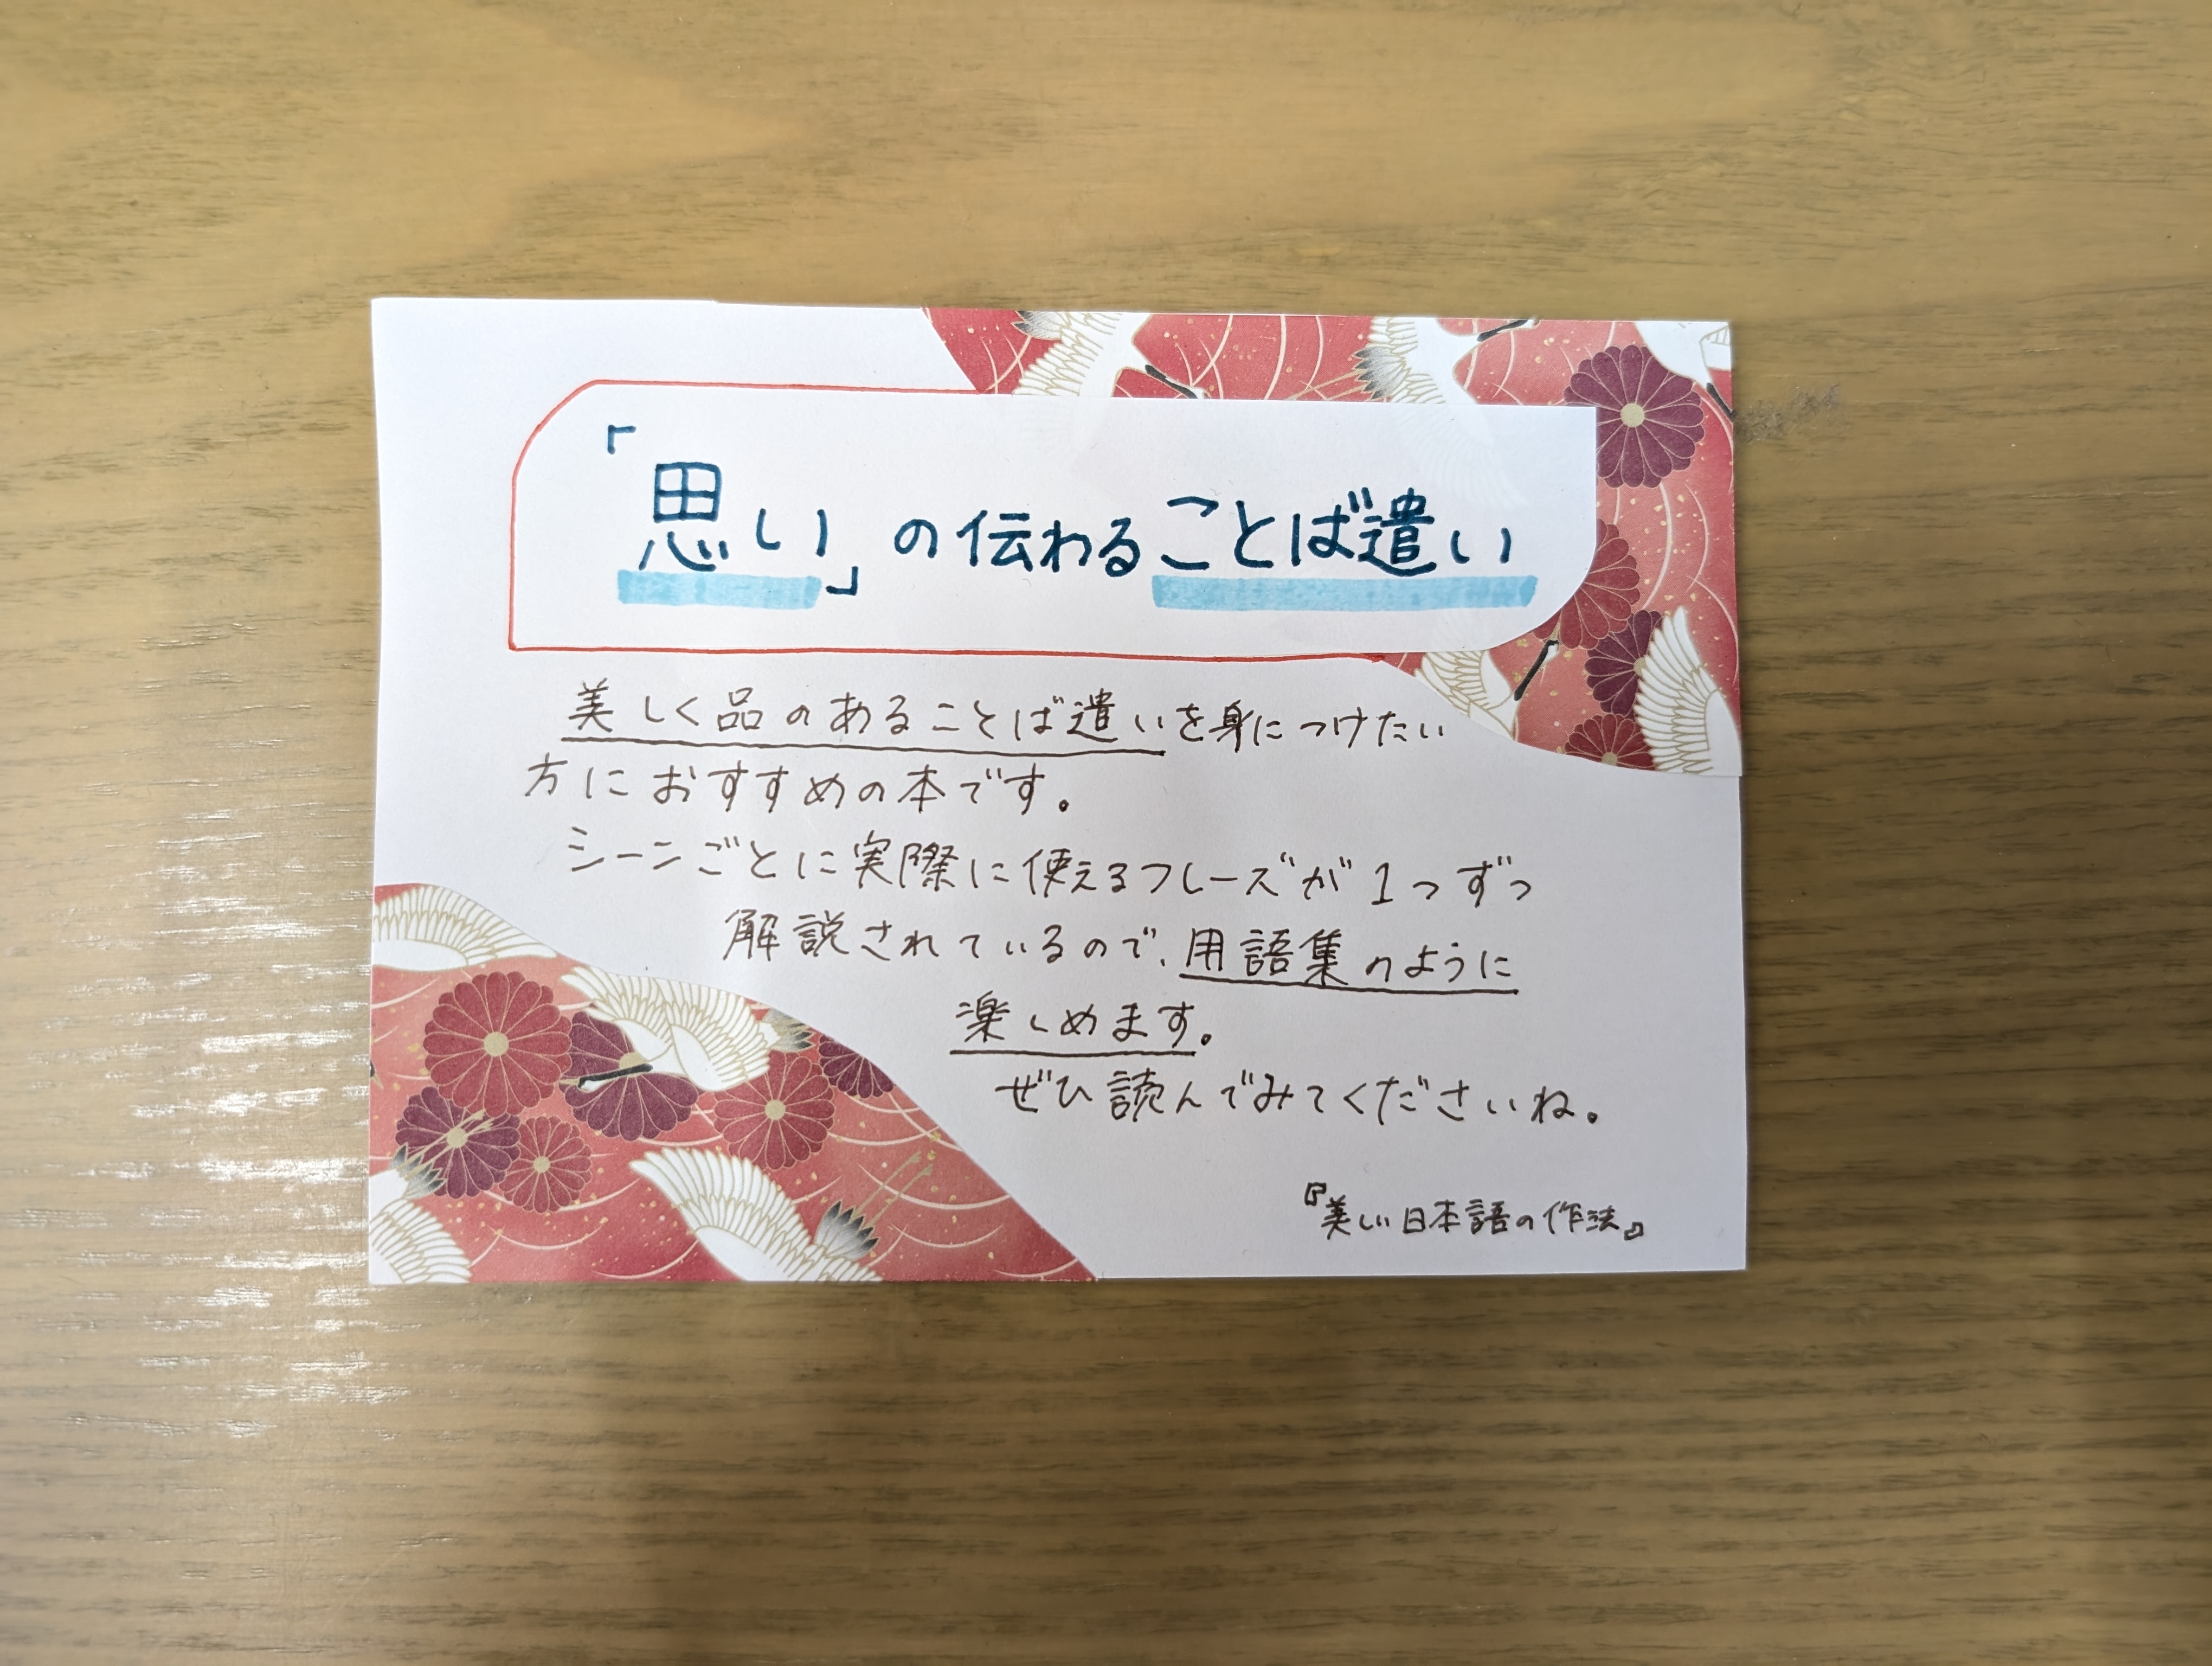 「思い」の伝わることば遣い
美しく品のあることば遣いを身につけたい
方におすすめの本です。
シーンごとに実際に使えるフレーズが1つずつ
解説されているので、用語集のように
楽しめます。
ぜひ読んでみてくださいね。
『美しい日本語の作法』